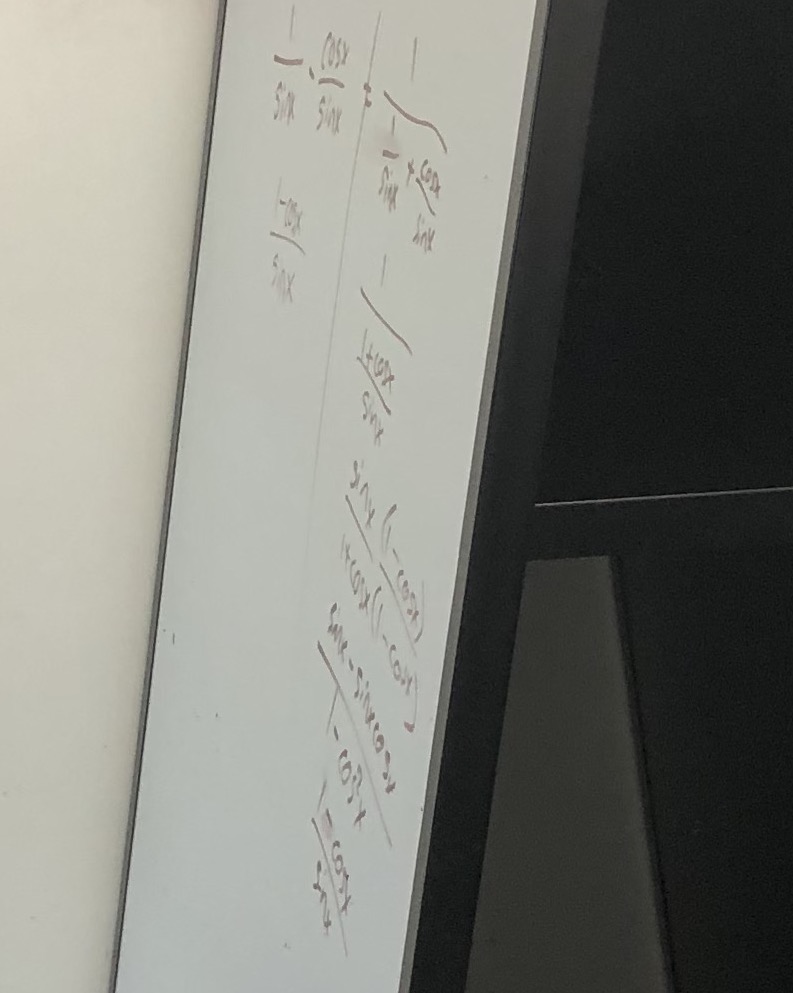 1/sinx · cosx/sinx = 1/(1/sinx + cosx/sinx)
1-cosx/sinx
1/(1+cosx/sinx)
sinx(1-cosx)/1+cosx(1-cosx)
sinx-sinxcosx/1-cos²x
1-cosx/sinx